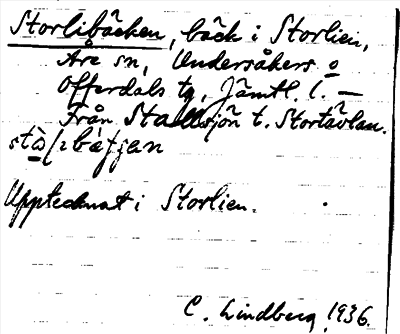 Storlibäcken, bäck i Storlien,
Åre sn, Undersåkers o
Offerdals tg, Jämtl. l. –
Från Stallsjön t. Stortävlan.
Upptecknat i Storlien.
C. Lindberg 1936.